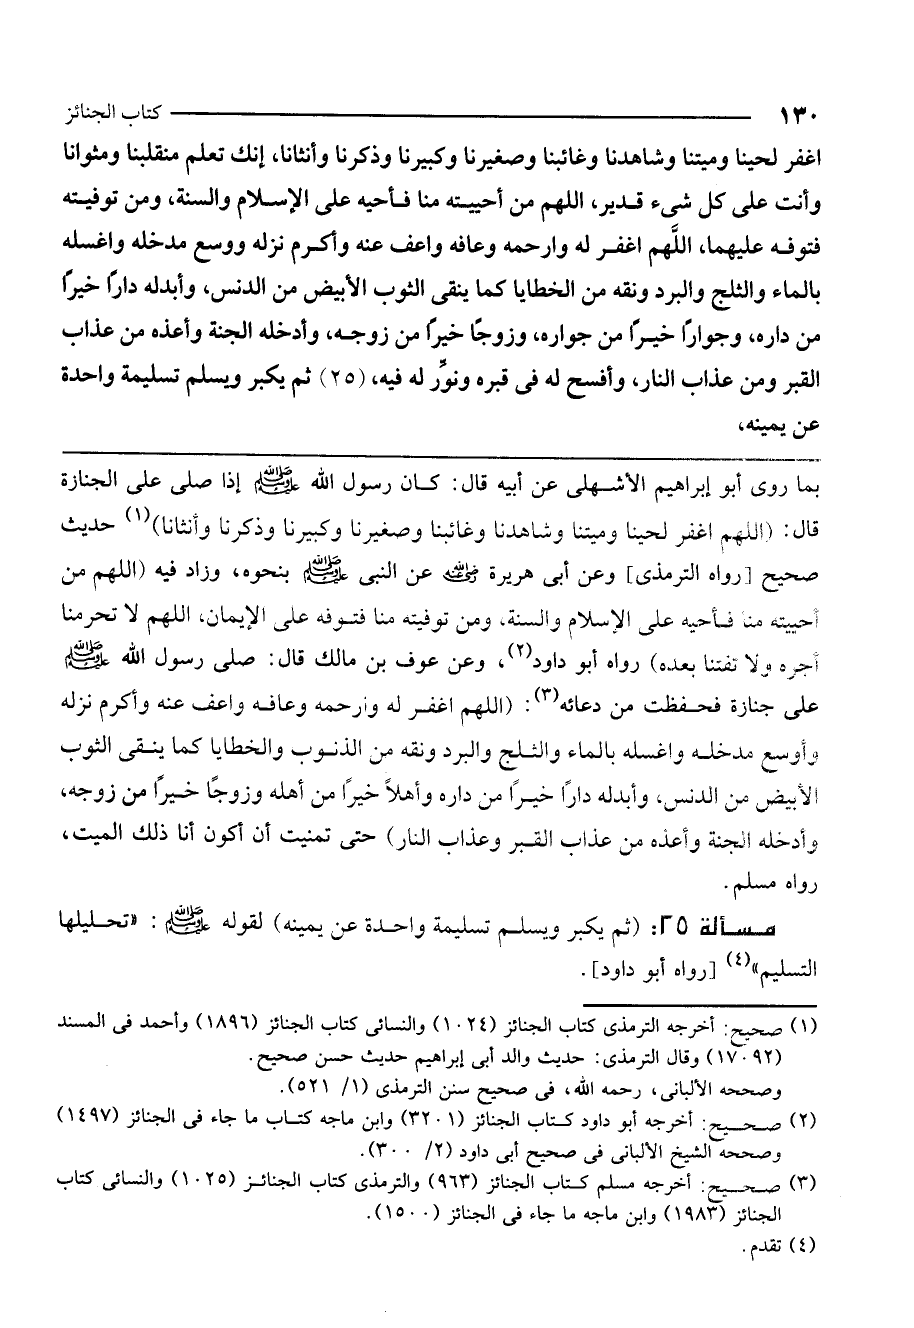 ١٣٠ كتاب الجنائز
اغفر لحينا وميتنا وشاهدنا وغائبنا وصغيرنا وكبيرنا وذكرنا وأنثانا، إنك تعلم منقلبنا ومثوانا
وأنت على كل شىء قدير، اللهم من أحييته منا فأحيه على الإسلام والسنة، ومن توفيته
فتوفه عليهما، اللَّهم اغفر له وارحمه وعافه واعف عنه وأكرم نزله ووسع مدخله واغسله
بالماء والثلج والبرد ونقه من الخطايا كما ينقى الثوب الأبيض من الدنس، وأبدله دارًا خيرًا
من داره، وجوارًا خيرًا من جواره، وزوجًا خيرًا من زوجه، وأدخله الجنة وأعذه من عذاب
القبر ومن عذاب النار، وأفسح له فى قبره ونوِّر له فيه، (٢٥) ثم يكبر ويسلم تسليمة واحدة
عن يمينه،
بما روى أبو إبراهيم الأشهلى عن أبيه قال: كان رسول الله ﷺ إذا صلى على الجنازة
قال: (اللهم اغفر لحينا وميتنا وشاهدنا وغائبنا وصغيرنا وكبيرنا وذكرنا وأنثانا)(١) حديث
صحيح [رواه الترمذى] وعن أبى هريرة رضي الله عنه عن النبى ﷺ بنحوه، وزاد فيه (اللهم من
أحييته منا فأحيه على الإسلام والسنة، ومن توفيته منا فتوفه على الإيمان، اللهم لا تحرمنا
أجره ولا تفتنا بعده) رواه أبو داود(٢)، وعن عوف بن مالك قال: صلى رسول الله ﷺ
على جنازة فحفظت من دعائه(٣): (اللهم اغفر له وارحمه وعافه واعف عنه وأكرم نزله
وأوسع مدخله واغسله بالماء والثلج والبرد ونقه من الذنوب والخطايا كما ينقى الثوب
الأبيض من الدنس، وأبدله دارًا خيرًا من داره وأهلاً خيرًا من أهله وزوجًا خيرًا من زوجه،
وأدخله الجنة وأعذه من عذاب القبر وعذاب النار) حتى تمنيت أن أكون أنا ذلك الميت،
رواه مسلم.
مسألة ٢٥: (ثم يكبر ويسلم تسليمة واحدة عن يمينه) لقوله ﷺ: «تحليلها
التسليم»(٤) [رواه أبو داود].
(١) صحيح: أخرجه الترمذى كتاب الجنائز (١٠٢٤) والنسائى كتاب الجنائز (١٨٩٦) وأحمد فى المسند
(١٧٠٩٢) وقال الترمذى: حديث والد أبى إبراهيم حديث حسن صحيح.
وصححه الألبانى، رحمه الله، فى صحيح سنن الترمذى (١/ ٥٢١).
(٢) صحيح: أخرجه أبو داود كتاب الجنائز (٣٢٠١) وابن ماجه كتاب ما جاء فى الجنائز (١٤٩٧)
وصححه الشيخ الألبانى فى صحيح أبى داود (٢/ ٣٠٠).
(٣) صحيح: أخرجه مسلم كتاب الجنائز (٩٦٣) والترمذى كتاب الجنائز (١٠٢٥) والنسائى كتاب
الجنائز (١٩٨٣) وابن ماجه ما جاء فى الجنائز (١٥٠٠).
(٤) تقدم.